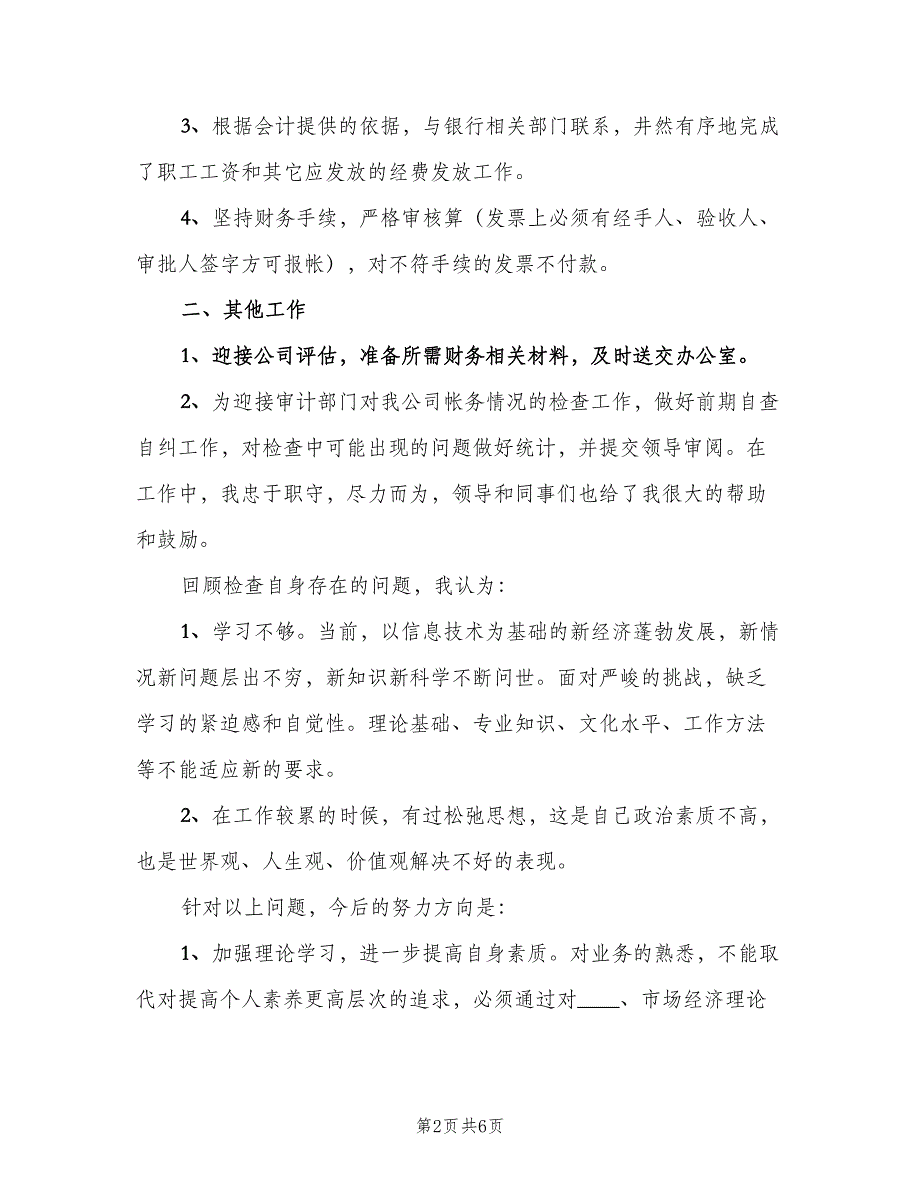 3、根据会计提供的依据，与银行相关部门联系，井然有序地完成
了职工工资和其它应发放的经费发放工作。
4、坚持财务手续，严格审核算（发票上必须有经手人、验收人、
审批人签字方可报帐），对不符手续的发票不付款。
二、其他工作
1、迎接公司评估，准备所需财务相关材料，及时送交办公室。
2、为迎接审计部门对我公司帐务情况的检查工作，做好前期自查
自纠工作，对检查中可能出现的问题做好统计，并提交领导审阅。在
工作中，我忠于职守，尽力而为，领导和同事们也给了我很大的帮助
和鼓励。
回顾检查自身存在的问题，我认为：
1、学习不够。当前，以信息技术为基础的新经济蓬勃发展，新情
况新问题层出不穷，新知识新科学不断问世。面对严峻的挑战，缺乏
学习的紧迫感和自觉性。理论基础、专业知识、文化水平、工作方法
等不能适应新的要求。
2、在工作较累的时候，有过松弛思想，这是自己政治素质不高，
也是世界观、人生观、价值观解决不好的表现。
针对以上问题，今后的努力方向是：
1、加强理论学习，进一步提高自身素质。对业务的熟悉，不能取
代对提高个人素养更高层次的追求，必须通过对____、市场经济理论
第2页共6页